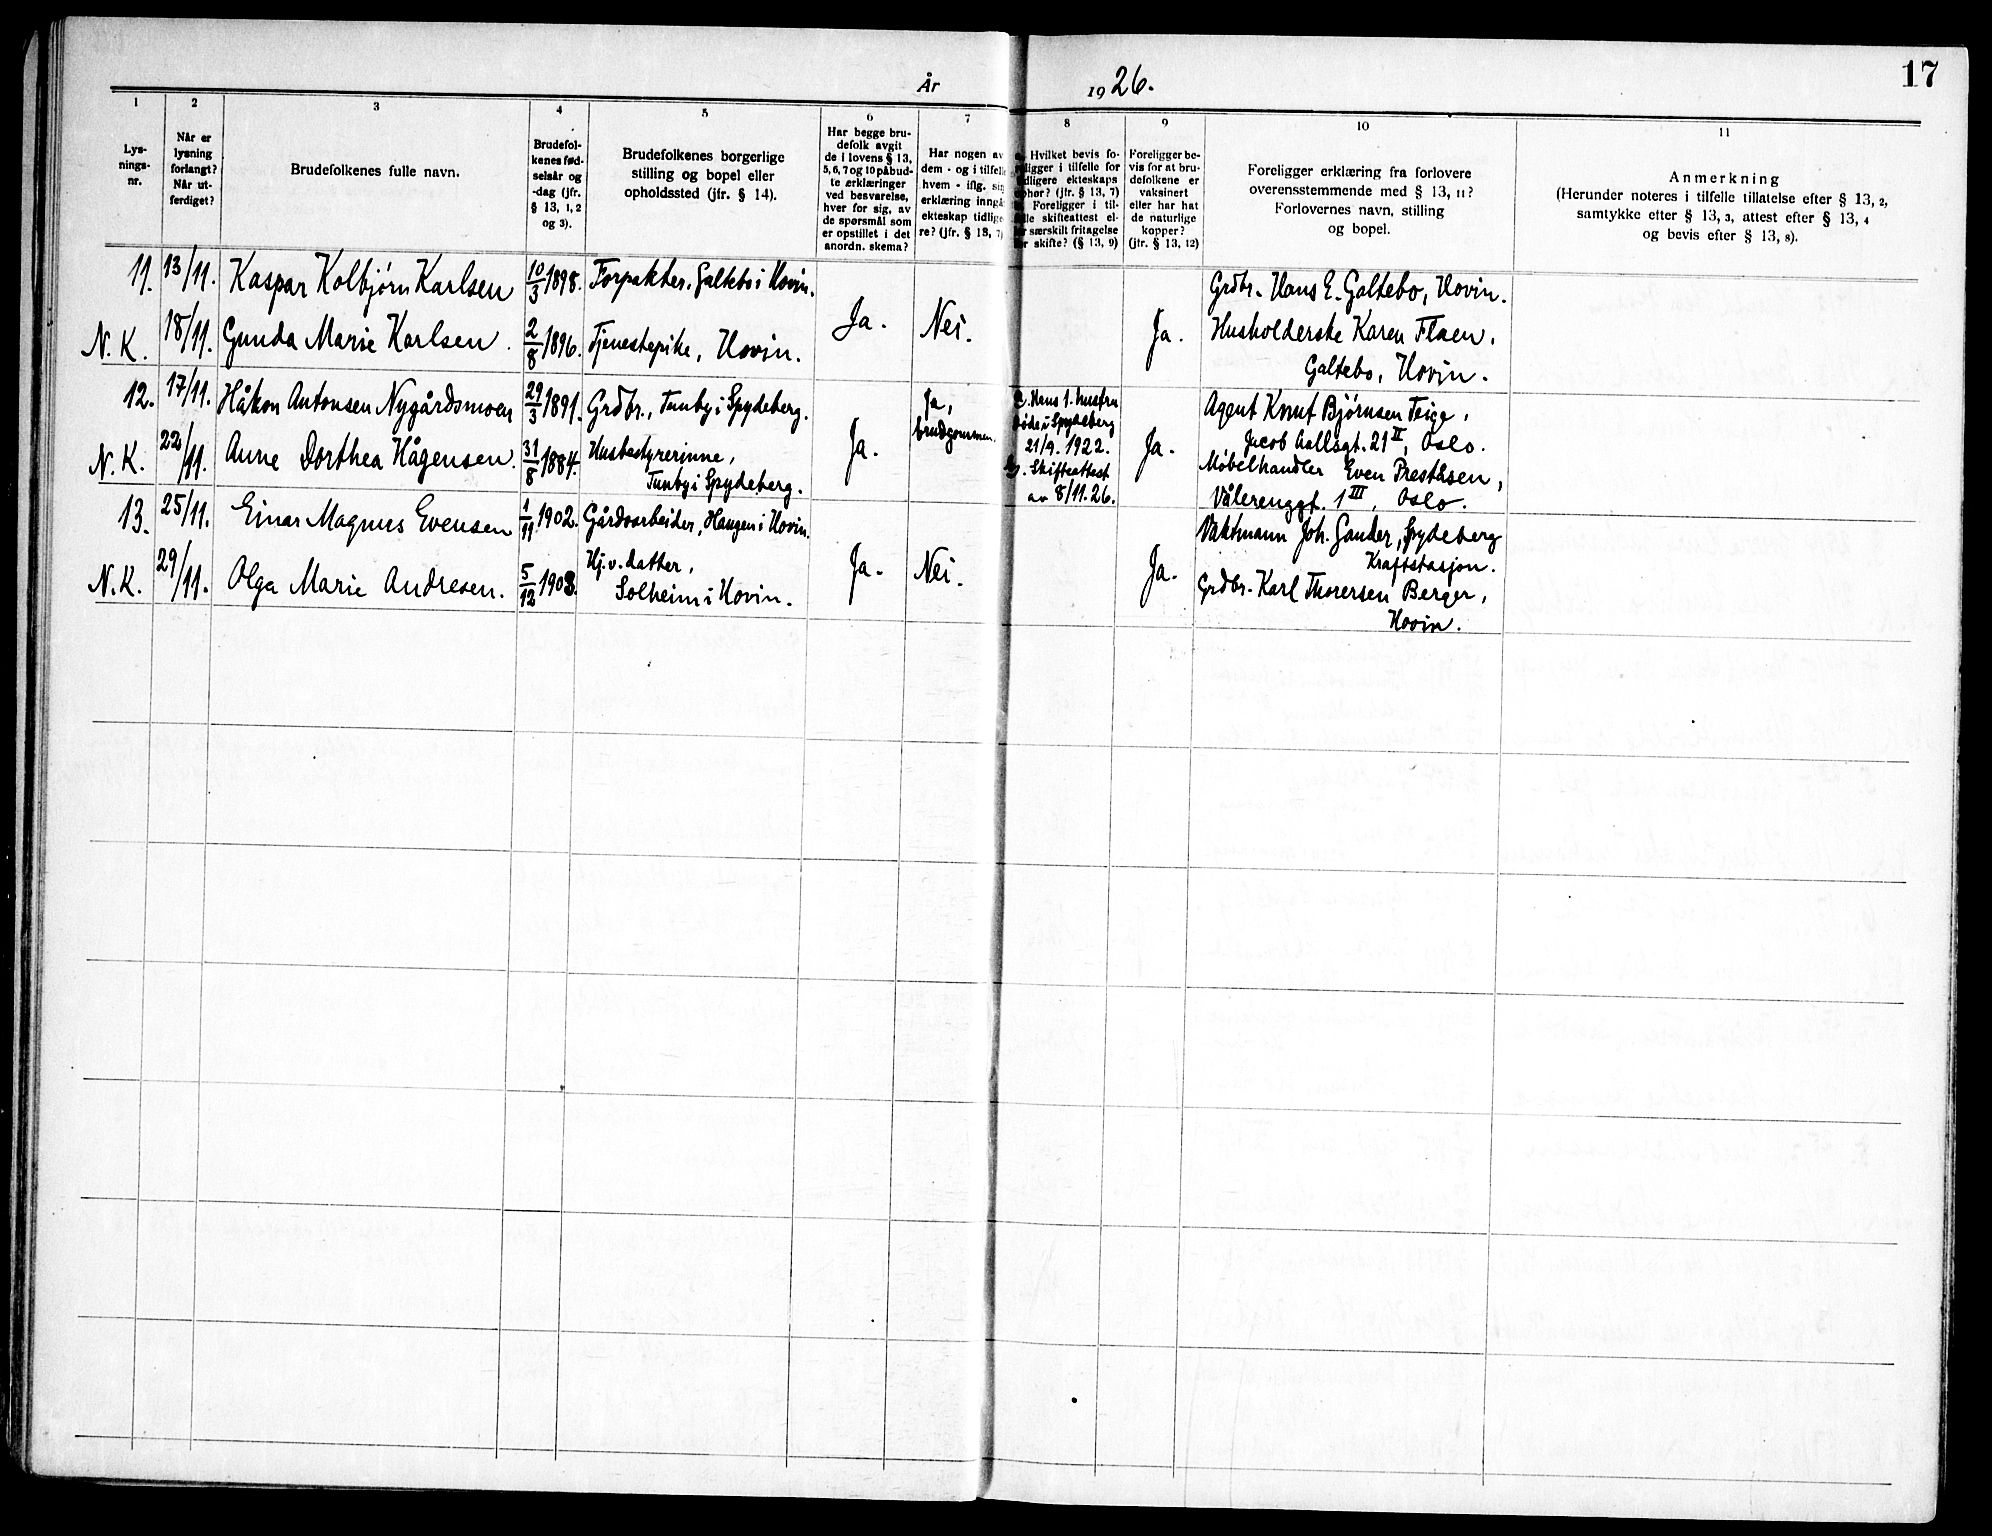 17
År 1926.
1 2 3 4 5 6 7 8 9 10 11
Lys-
nings-
nr.
Når er
lysning
forlangt?
Når ut-
ferdiget?
Brudefolkenes fulle navn.
Brudefol-
kenes fød-
selsår og
-dag (jfr.
§ 13, 1, 2
og 3).
Brudefolkenes borgerlige
stilling og bopel eller
opholdssted (jfr. § 14).
Har begge bru-
defolk avgit
de i lovens § 13,
5, 6, 7 og 10 påbud-
te erklæringer
ved besvarelse,
hver for sig, av
de spørsmål som
er opstillet i det
anordn. skema?
Har nogen av
dem - og i tilfelle
hvem - iflg. sin
erklæring inngå
ekteskap tidlige-
re? (jfr. § 13, 7)
Hvilket bevis fo-
religger i tilfelle for
tidligere ekteskaps
ophør? (jfr. § 13, 7)
Foreligger i til-
felle skifteattest el-
ler særskilt fritagelse
for skifte? (§ 13, 9)
Foreligger be-
vis for at bru-
defolkene er
vaksinert
eller har hat
de naturlige
kopper?
(jfr. § 13, 12)
Foreligger erklæring fra forlovere
overensstemmende med § 13, 11?
Forlovernes navn, stilling
og bopel.
Anmerkning
(Herunder noteres i tilfelle tillatelse efter § 13, 2,
samtykke efter § 13, 3, attest efter § 13, 4
og bevis efter § 13, 8).
11. 13/11. Kaspar Kolbjørn Karlsen 10/3 1898. Forpakter, Galtebo i Hovin. Grdbr. Hans E. Galtebo, Hovin.
N.K. 18/11. Gunda Marie Karlsen. 2/8 1896. Tjenestepike, Hovin. Ja. Nei. Ja. Husholderske Karen Flaen,
Galtebo, Hovin.
12. 17/11. Håkon Antonsen Nygårdsmoen 29/3 1891. Grdbr., Tunby i Spydeberg. Ja, Hans 1. hustru Agent Knut Bjørnsen Teige,
brudgommen. døde i Spydeberg
22/11. Ja. 21/9. 1922. Ja. Jacob Aallsgt. 21 II, Oslo.
N.K. Anne Dorthea Hågensen. 31/8 1884. Husbestyrerinne, Skifteattest Møbelhandler Even Preståsen,
Tunby i Spydeberg. av 8/11.26. Vålerenggt. 1 III, Oslo.
13. 25/11. Einar Magnus Evensen 1/11 1902. Gårdsarbeider, Haugen i Hovin. Vaktmann Joh. Sander, Spydeberg
Kraftstasjon.
29/11. Hj.v. datter, Ja. Nei. Ja.
N.K. Olga Marie Andresen. 5/12 1903. Solheim i Hovin. Grdbr. Karl Thoresen Berger,
Hovin.